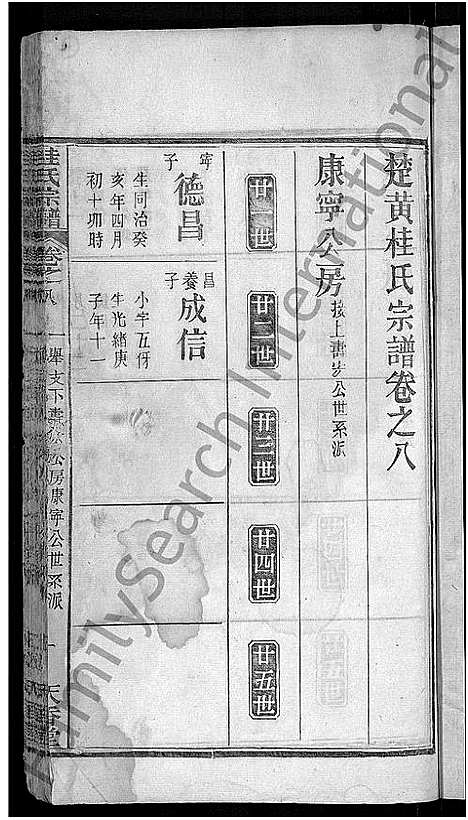 楚黃桂氏宗譜卷之八
康寧公房 接上壽安公世系派
廿一世
廿二世
廿三世
廿四世
廿五世
寧子 德昌
生同治癸
亥年四月
初十卯時
昌養子 成信
小字五伢
生光緒庚
子年十一
桂氏宗譜 卷之八
公房康寧公世系派
一
天香堂
FamilySearch International